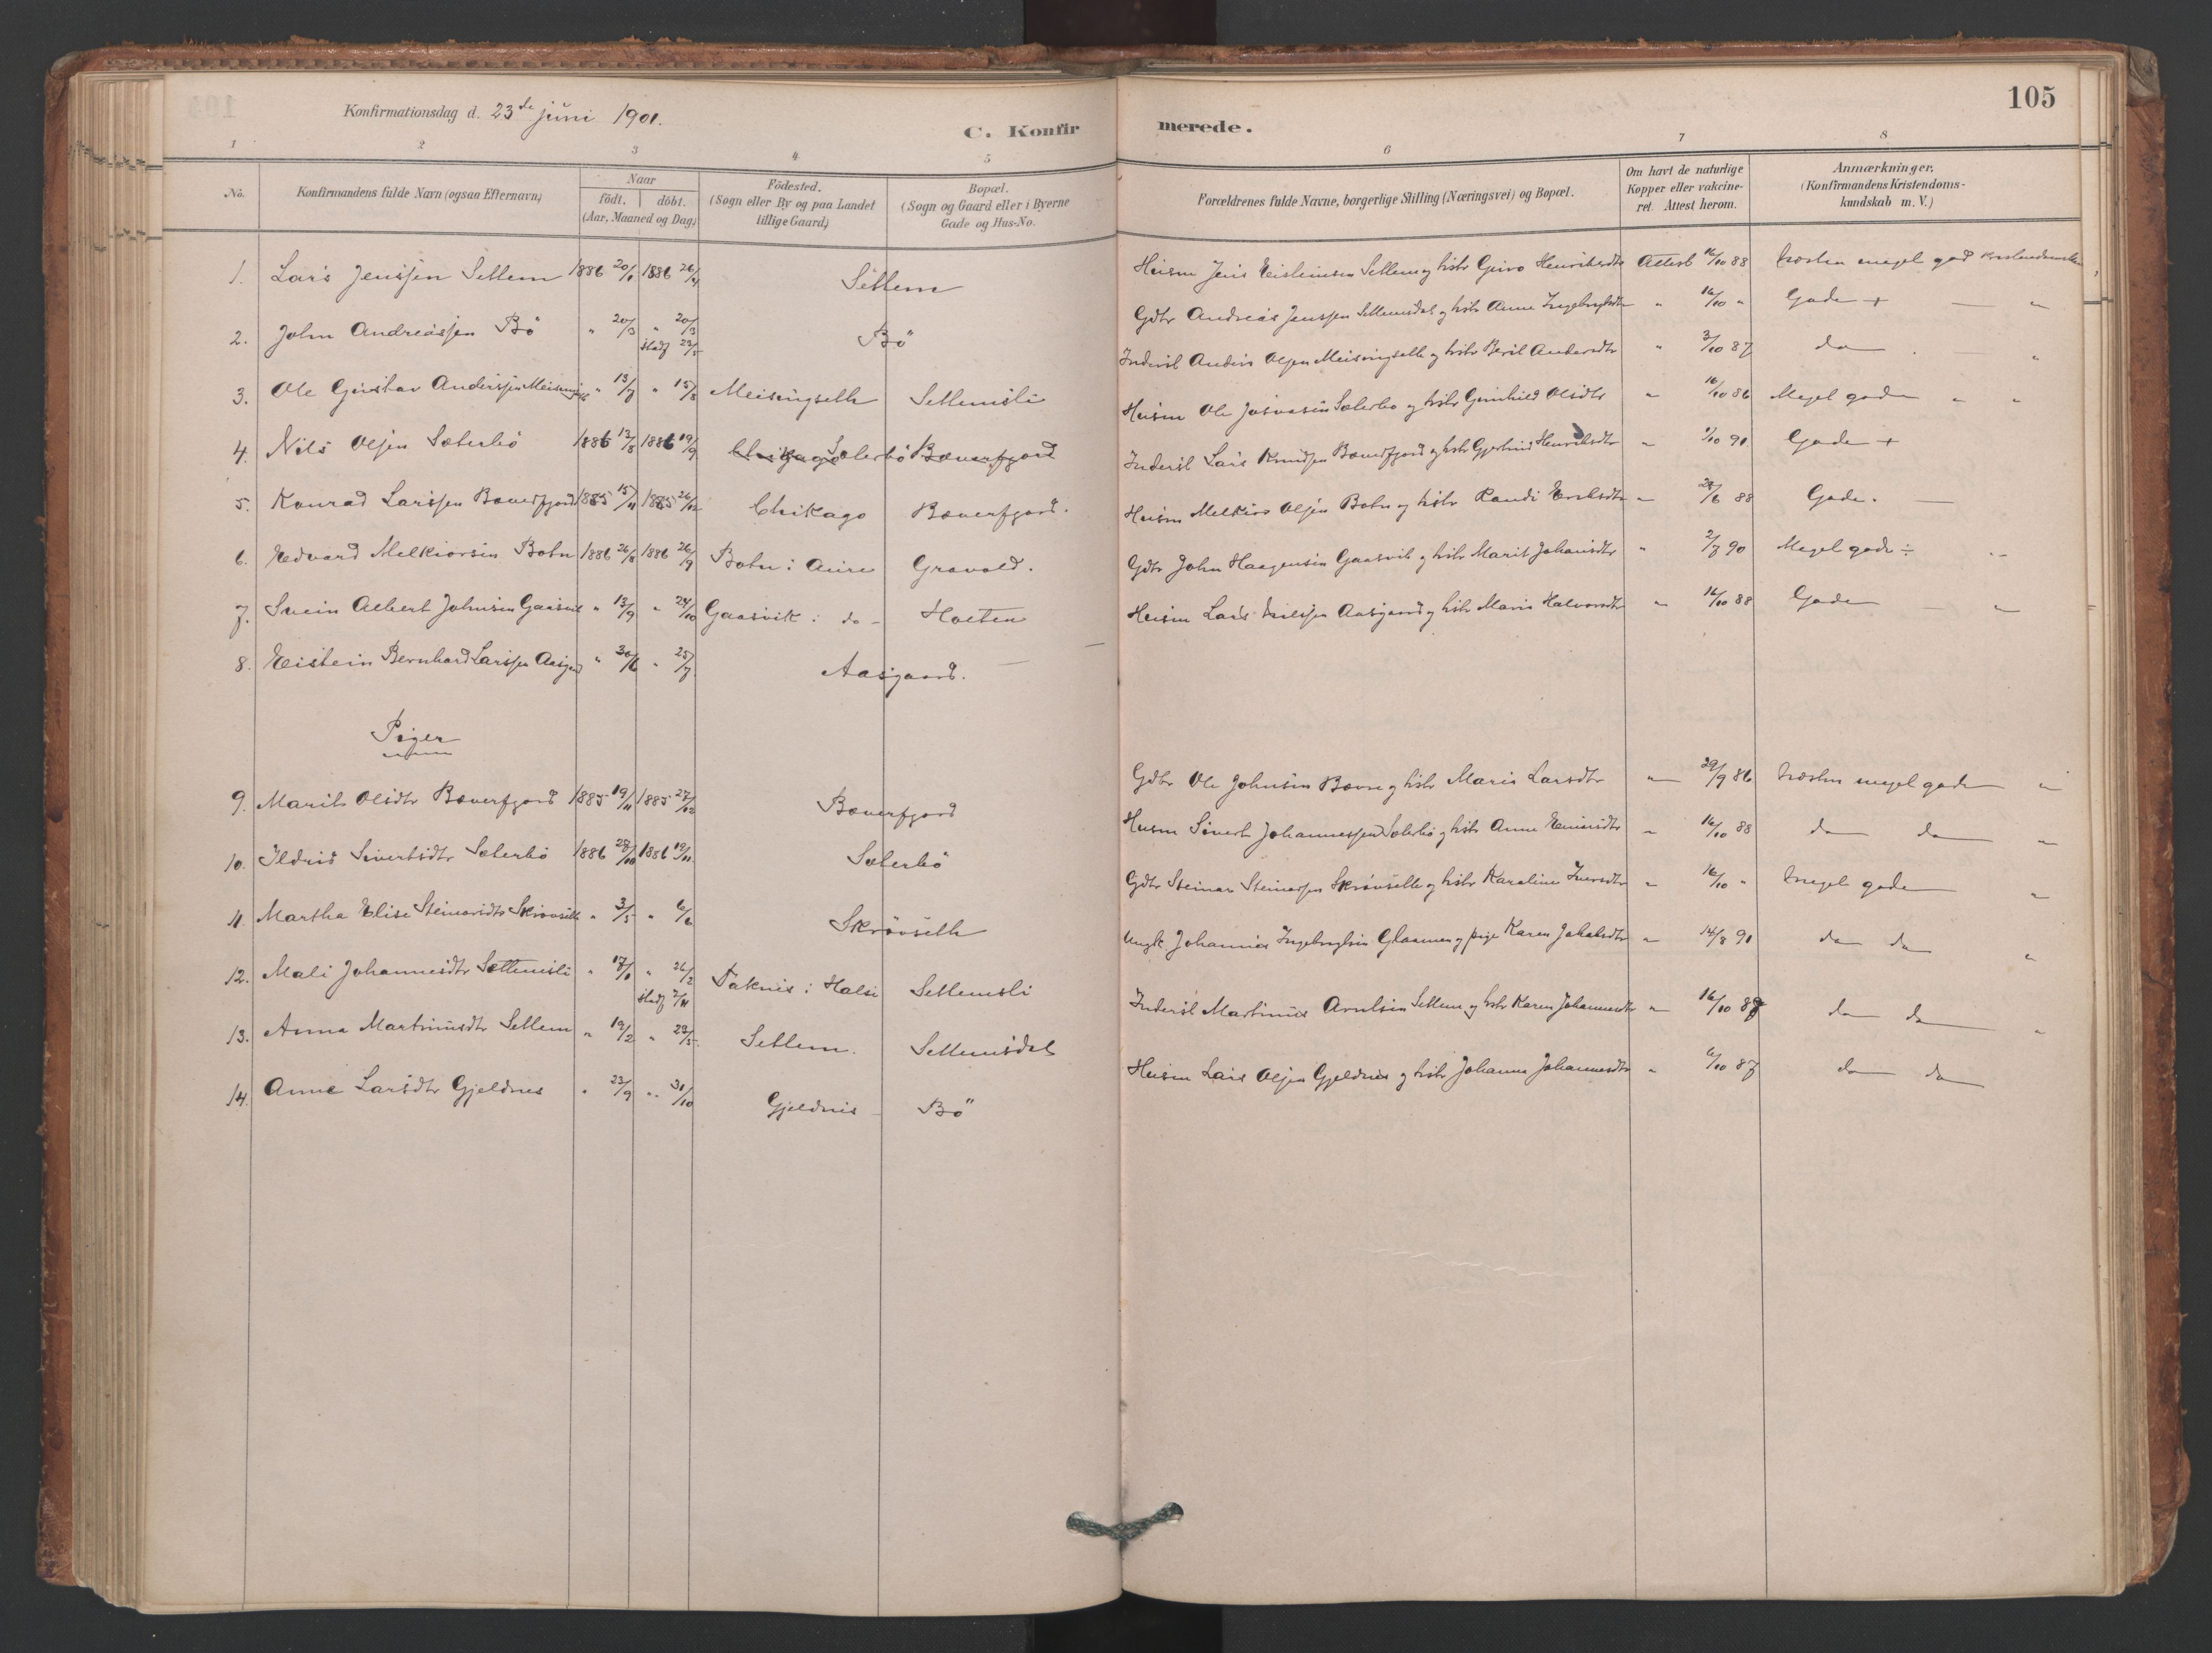 105
Konfirmationsdag d. 23de juni 1901.
C. Konfirmerede.
1 2 3 4 5 6 7 8
No. Konfirmandens fulde Navn (ogsaa Efternavn) Naar födt. döbt. (Aar, Maaned og Dag) Födested. (Sogn eller By og paa Landet tillige Gaard) Bopæl. (Sogn og Gaard eller i Byerne Gade og Hus-No. Forældrenes fulde Navne, borgerlige Stilling (Næringsvei) og Bopæl. Om havt de naturlige Kopper eller vakcineret. Attest herom. Anmærkninger. (Konfirmandens Kristendomskundskab m. V.)
1. Lars Jenssen Settem 1886 20/1 1886 26/4 Settem Husm Jens Eisteinsen Settem og hstr Guro Henriksdtr Attest 16/10 88 Næsten meget god
2. John Andreassen Bö " 20/3 " 20/3 stadf 23/5 Bö Gdbr Andreas Jenssen Settemsdal og hstr Anne Ingebrigtsdtr " 16/10 " Gode + — "
3. Ole Gustav Anderssen " 13/7 " 15/8 Meisingseth Settemsli Inderst Anders Olsen Meisingseth og hstr Beret Andersdtr " 3/10 87 do "
4. Nils Olsen Sæterbö 1886 13/8 1886 19/9 Chikago Sæterbö Bæverfjord Husm Ole Sæterbö og hstr Gunhild Olsdtr " 16/10 86 Meget gode " "
5. Konrad Larssen Bæverfjord 1885 15/11 1885 26/12 Chikago Bæverfjord. Inderst Lars Knudsen Bæverfjord og hstr Gjertrud Henriksdtr " 1/10 90 Gode +
6. Edvard Melkiorsen Botn 1886 26/8 1886 26/9 Botn i Aure Gravold. Husm Melkior Olsen Botn og hstr Randi Eriksdtr " 28/6 88 Gode. —
7. Svein Albert Johnsen Gaasvik " 13/9 " 24/10 Gaasvik i do - Holten Gdbr John Haagensen Gaasvik og hstr Marit Johansdtr " 2/7 90 Meget gode ÷ "
8. Eistein Bernhard Larssen Aasgard " 30/6 " 25/7 Aasgaard. — Husm Lars Aasgaard og hstr Marie Halvorsdtr " 16/10 88 Gode — "
Piger
9. Marit Olsdtr Bæverfjord 1885 19/11 1885 27/12 Bæverfjord Gdbr Ole Johnsen Bævre og hstr Maria Larsdtr " 29/9 86 Næsten meget gode "
10. Ildrid Sivertsdtr Sæterbö 1886 28/10 1886 19/11 Sæterbö Husm Sivert Johannessen Sæterbö og hstr Anne " 16/10 88 do do "
11. Martha Elise Steinarsdtr Skrövseth " 3/5 " 6/6 Skrövseth Gdbr Steinar Steinarsen Skrövseth og hstr Karoline Iversdtr " 16/10 " Meget gode "
12. Mali Johannesdtr Settemsli " 17/1 " 26/2 stadf 7/11 Taknes i Halse Settemsli Ungk. Johannes Ingebrigtsen Glaamen og pige Karen Jakobsdtr " 14/8 91 do do "
13. Anna Martinusdtr Settem " 19/2 " 23/5 Settem. Settemsdal Inderst Martinus Arntsen Settem og hstr Karen Johannesdtr " 16/10 88 do do "
14. Anne Larsdtr Gjeldnes " 23/9 " 31/10 Gjeldnes - Bö Husm Lars Olsen Gjeldnes og hstr Johanna Johannesdtr " 6/10 87 do do